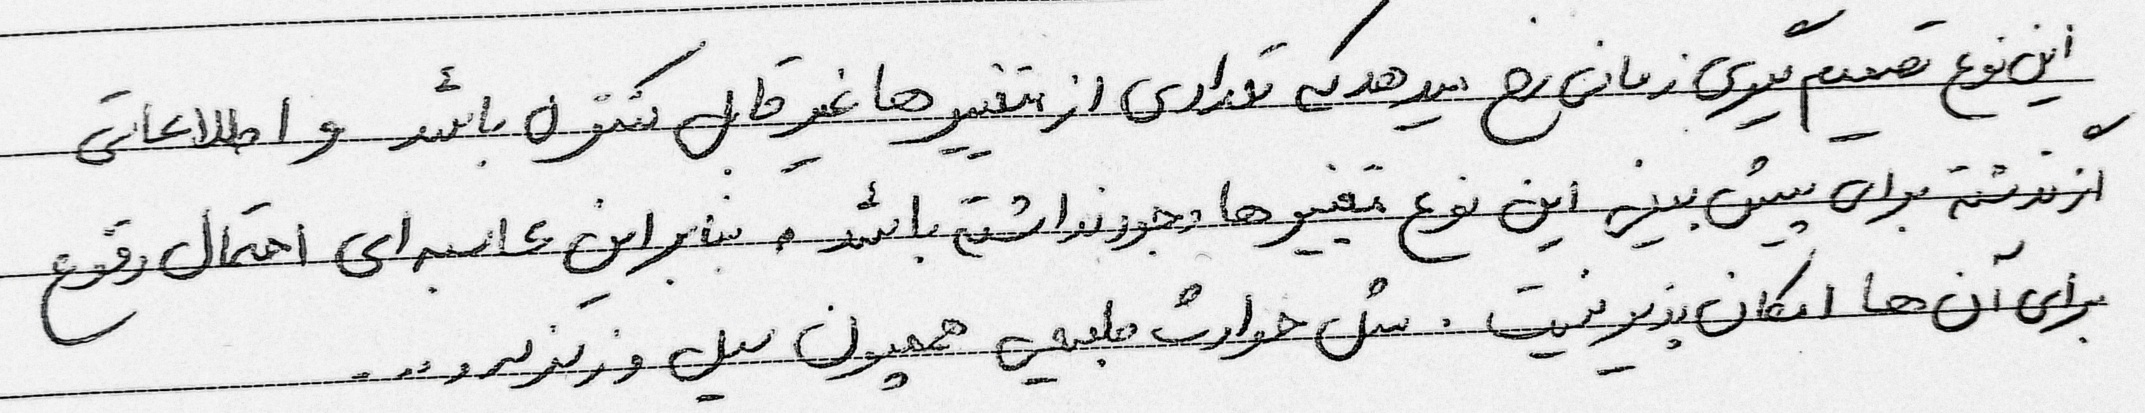 این نوع تصمیم گیری زمانی رخ میدهد که تعدادی از متغییرها غیر قابل کنترل باشد و اطلاعاتی
از گذشته برای پیش بینی این نوع متغییرها وجود نداشته باشد. بنابراین محاسبه ای احتمال وقوع
برای آن ها امکان پذیر نیست. مثل حوادث طبیعی همچون سیل و زلزله و ...